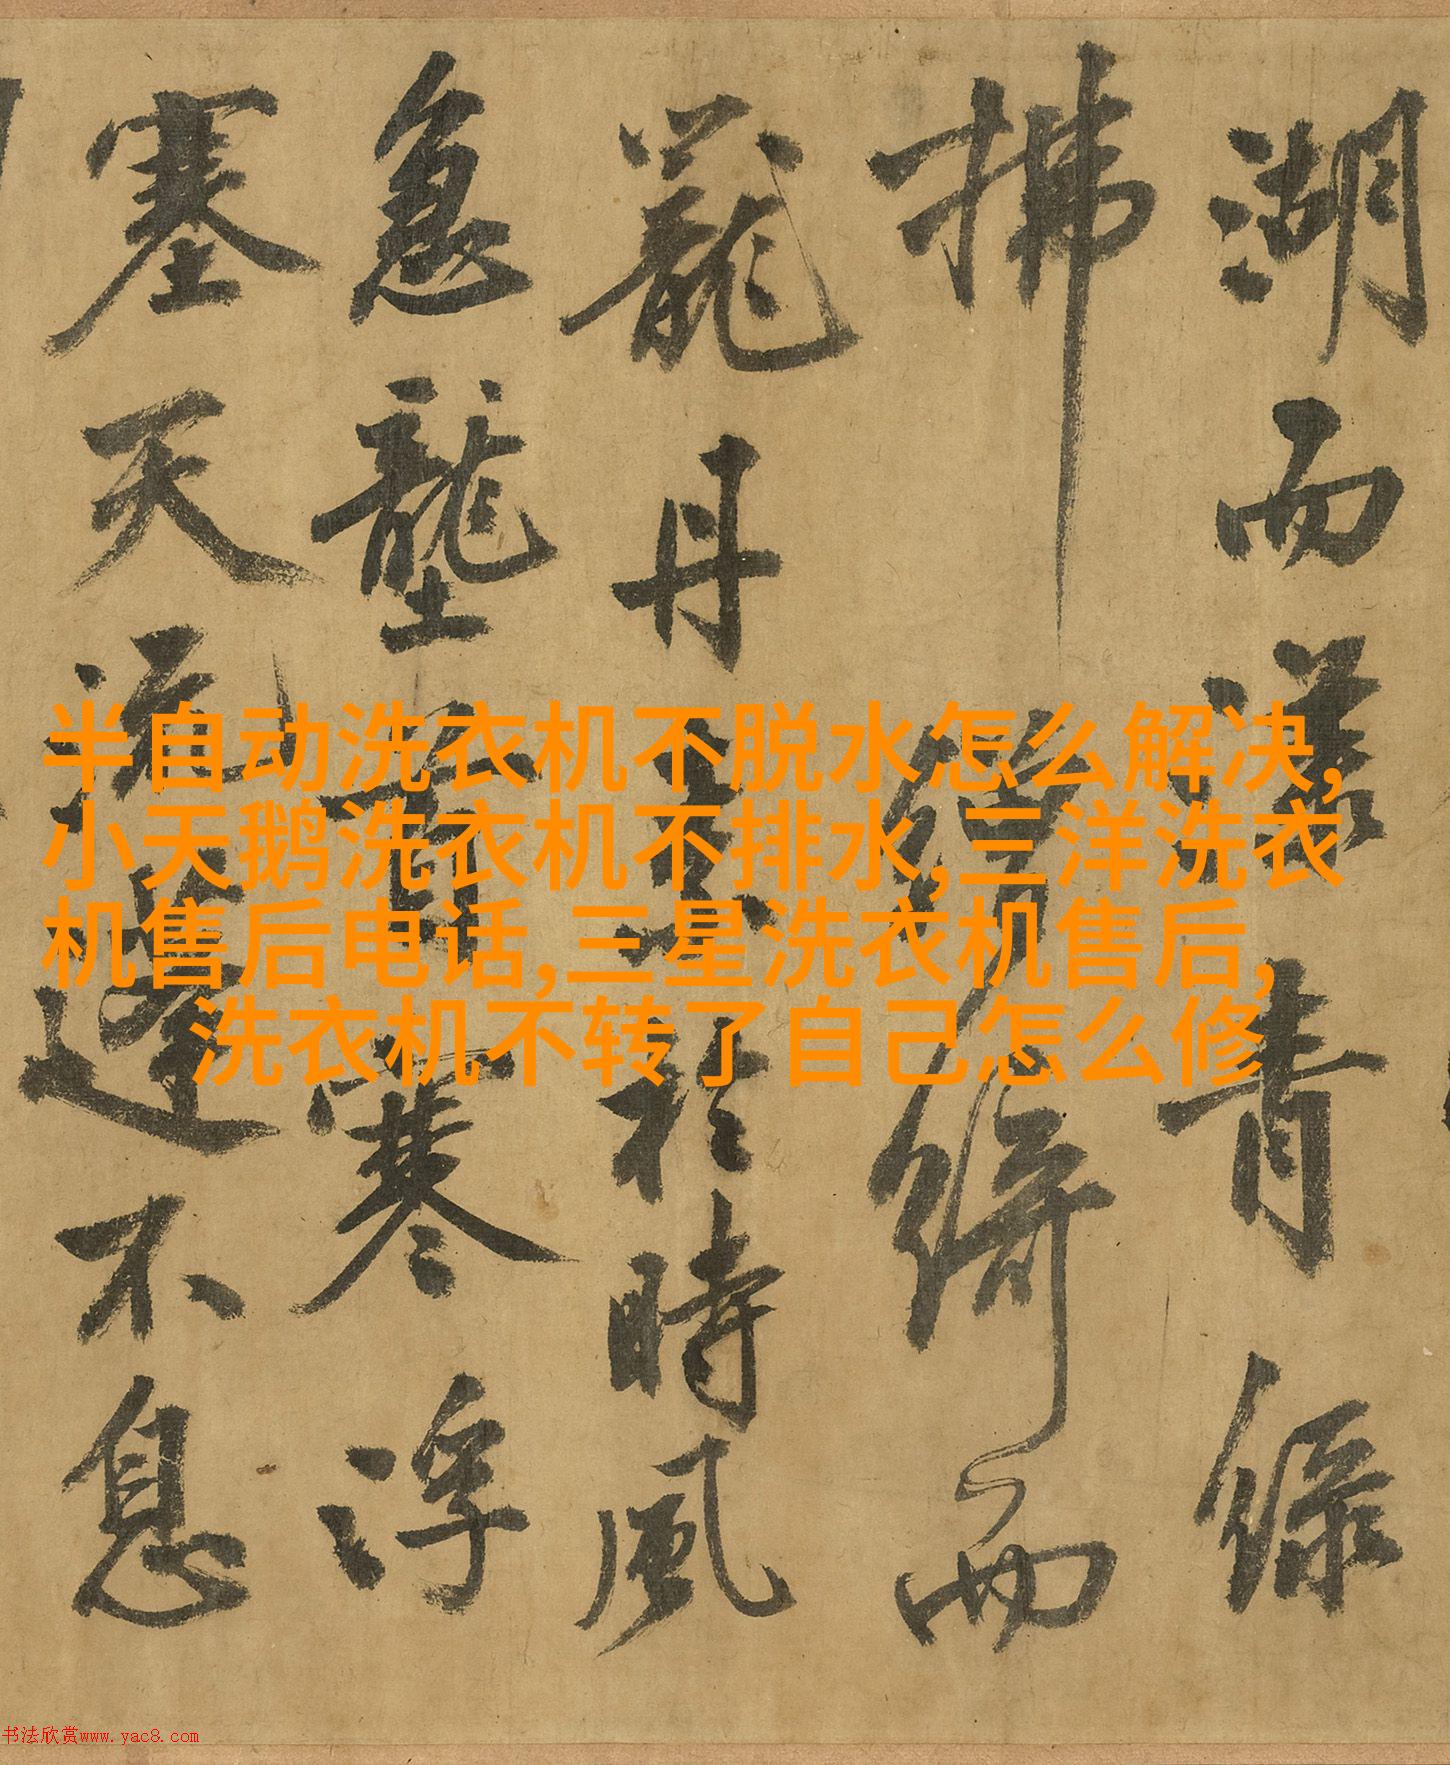 湖而漾青綠
拂繒綺而
蘢丹於時風
急壟寒浮
塞天流不息
半自动洗衣机不脱水怎么解决,
小天鹅洗衣机不排水,三洋洗衣
机售后电话,三星洗衣机售后,
洗衣机不转了自己怎么修
书法欣赏www.yac8.com